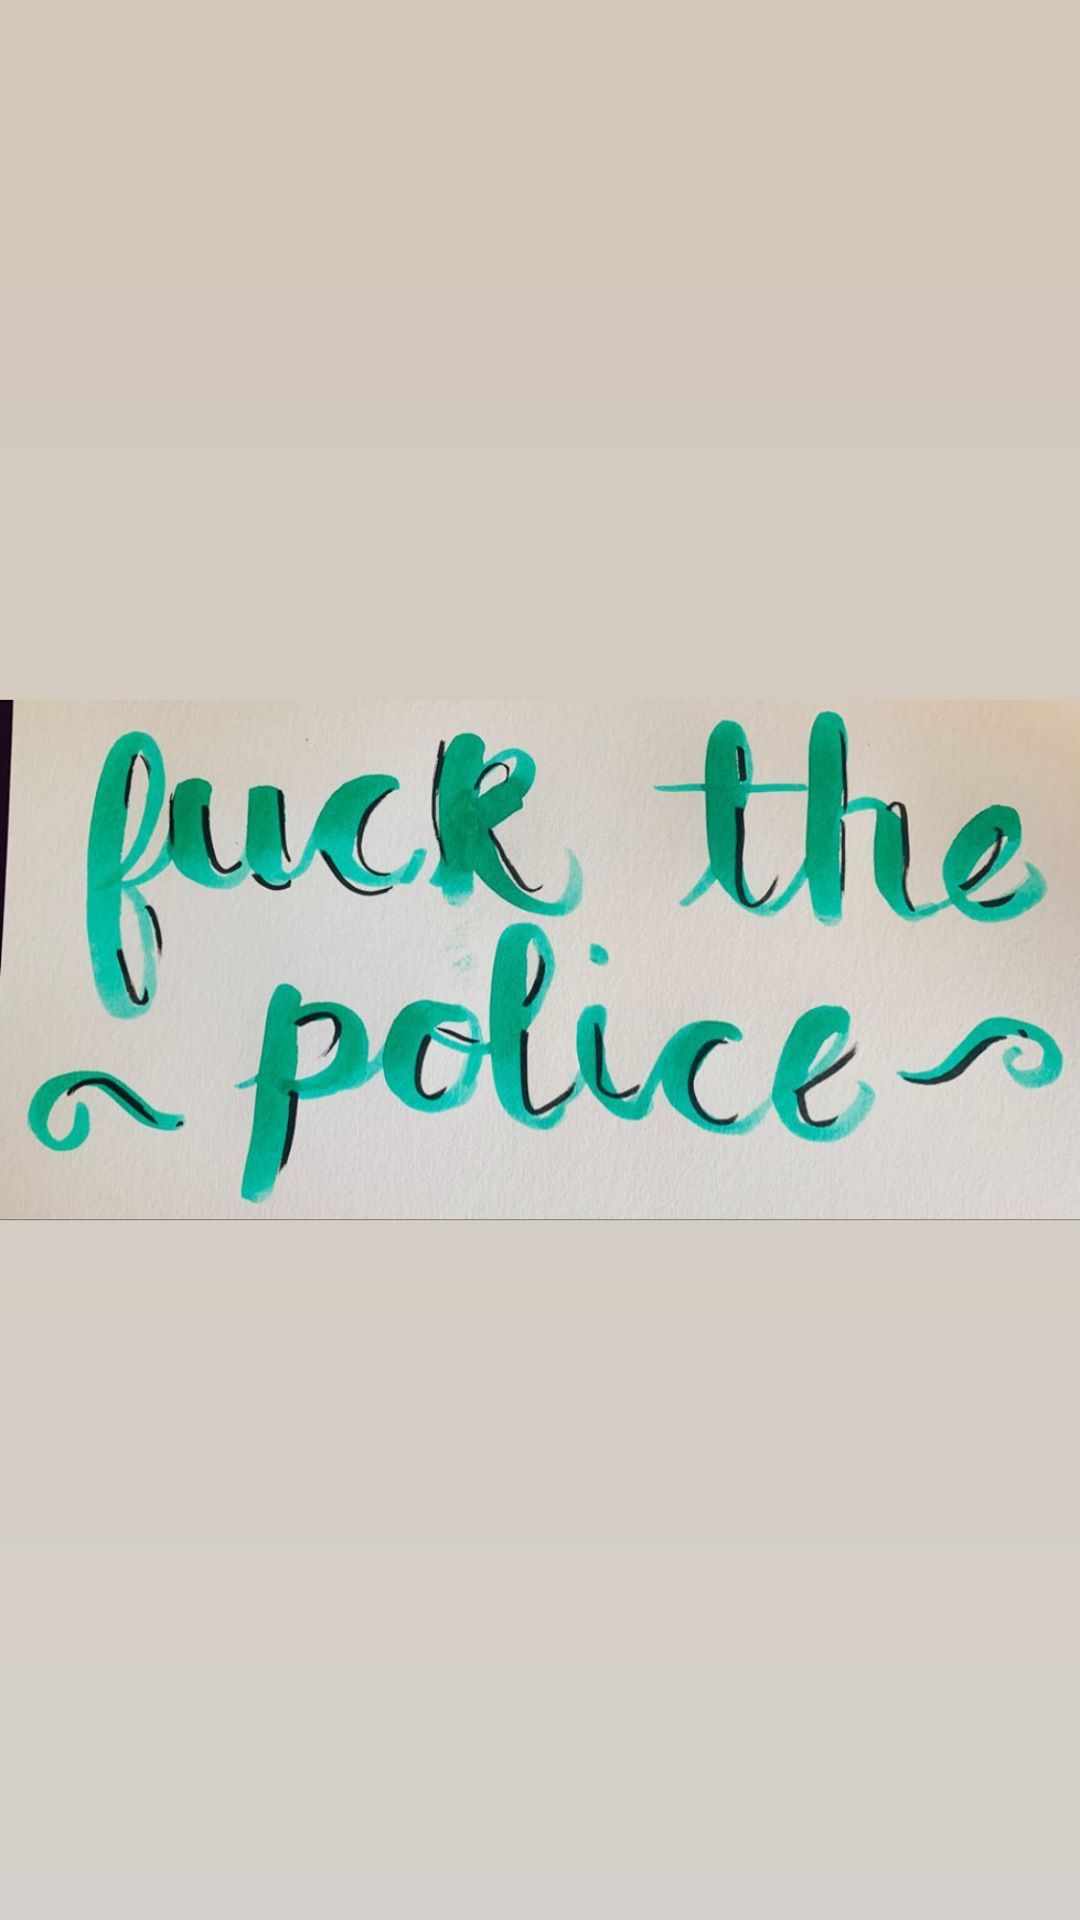 fuck the
police